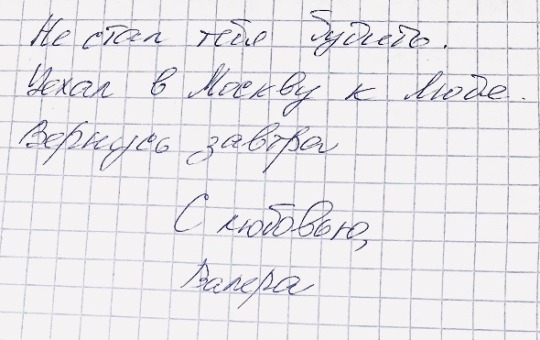 Не стал тебя будить.
Уехал в Москву к Люде.
Вернусь завтра
С любовью,
Валера